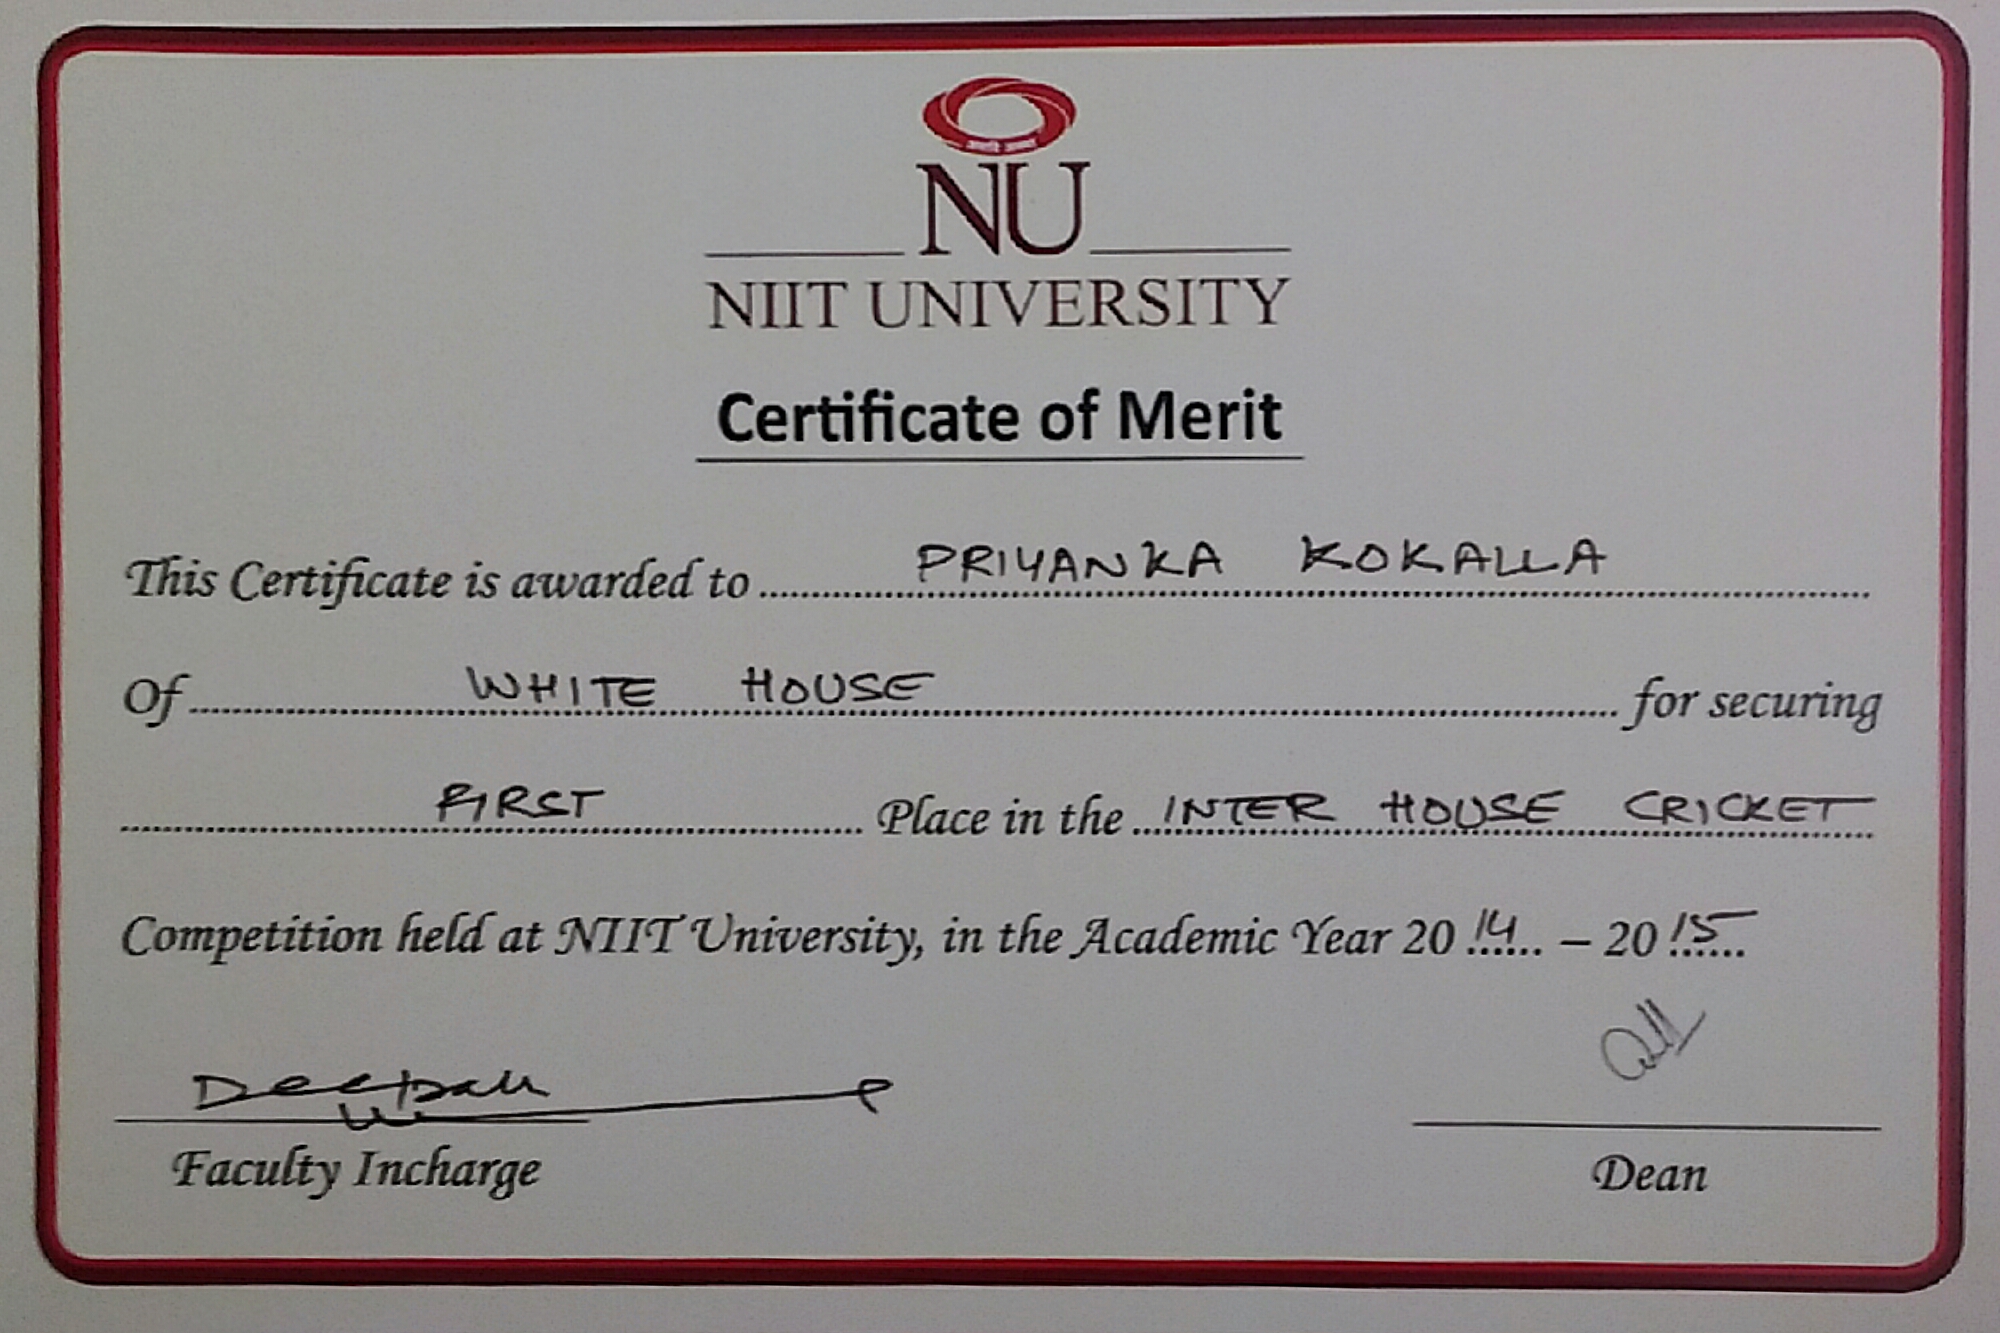 NU
NIIT UNIVERSITY
Certificate of Merit
This Certificate is awarded to PRIYANKA KOKALLA
Of WHITE HOUSE for securing
FIRST Place in the INTER HOUSE CRICKET
Competition held at NIIT University, in the Academic Year 2014 – 2015
Deepak
Faculty Incharge
Dean